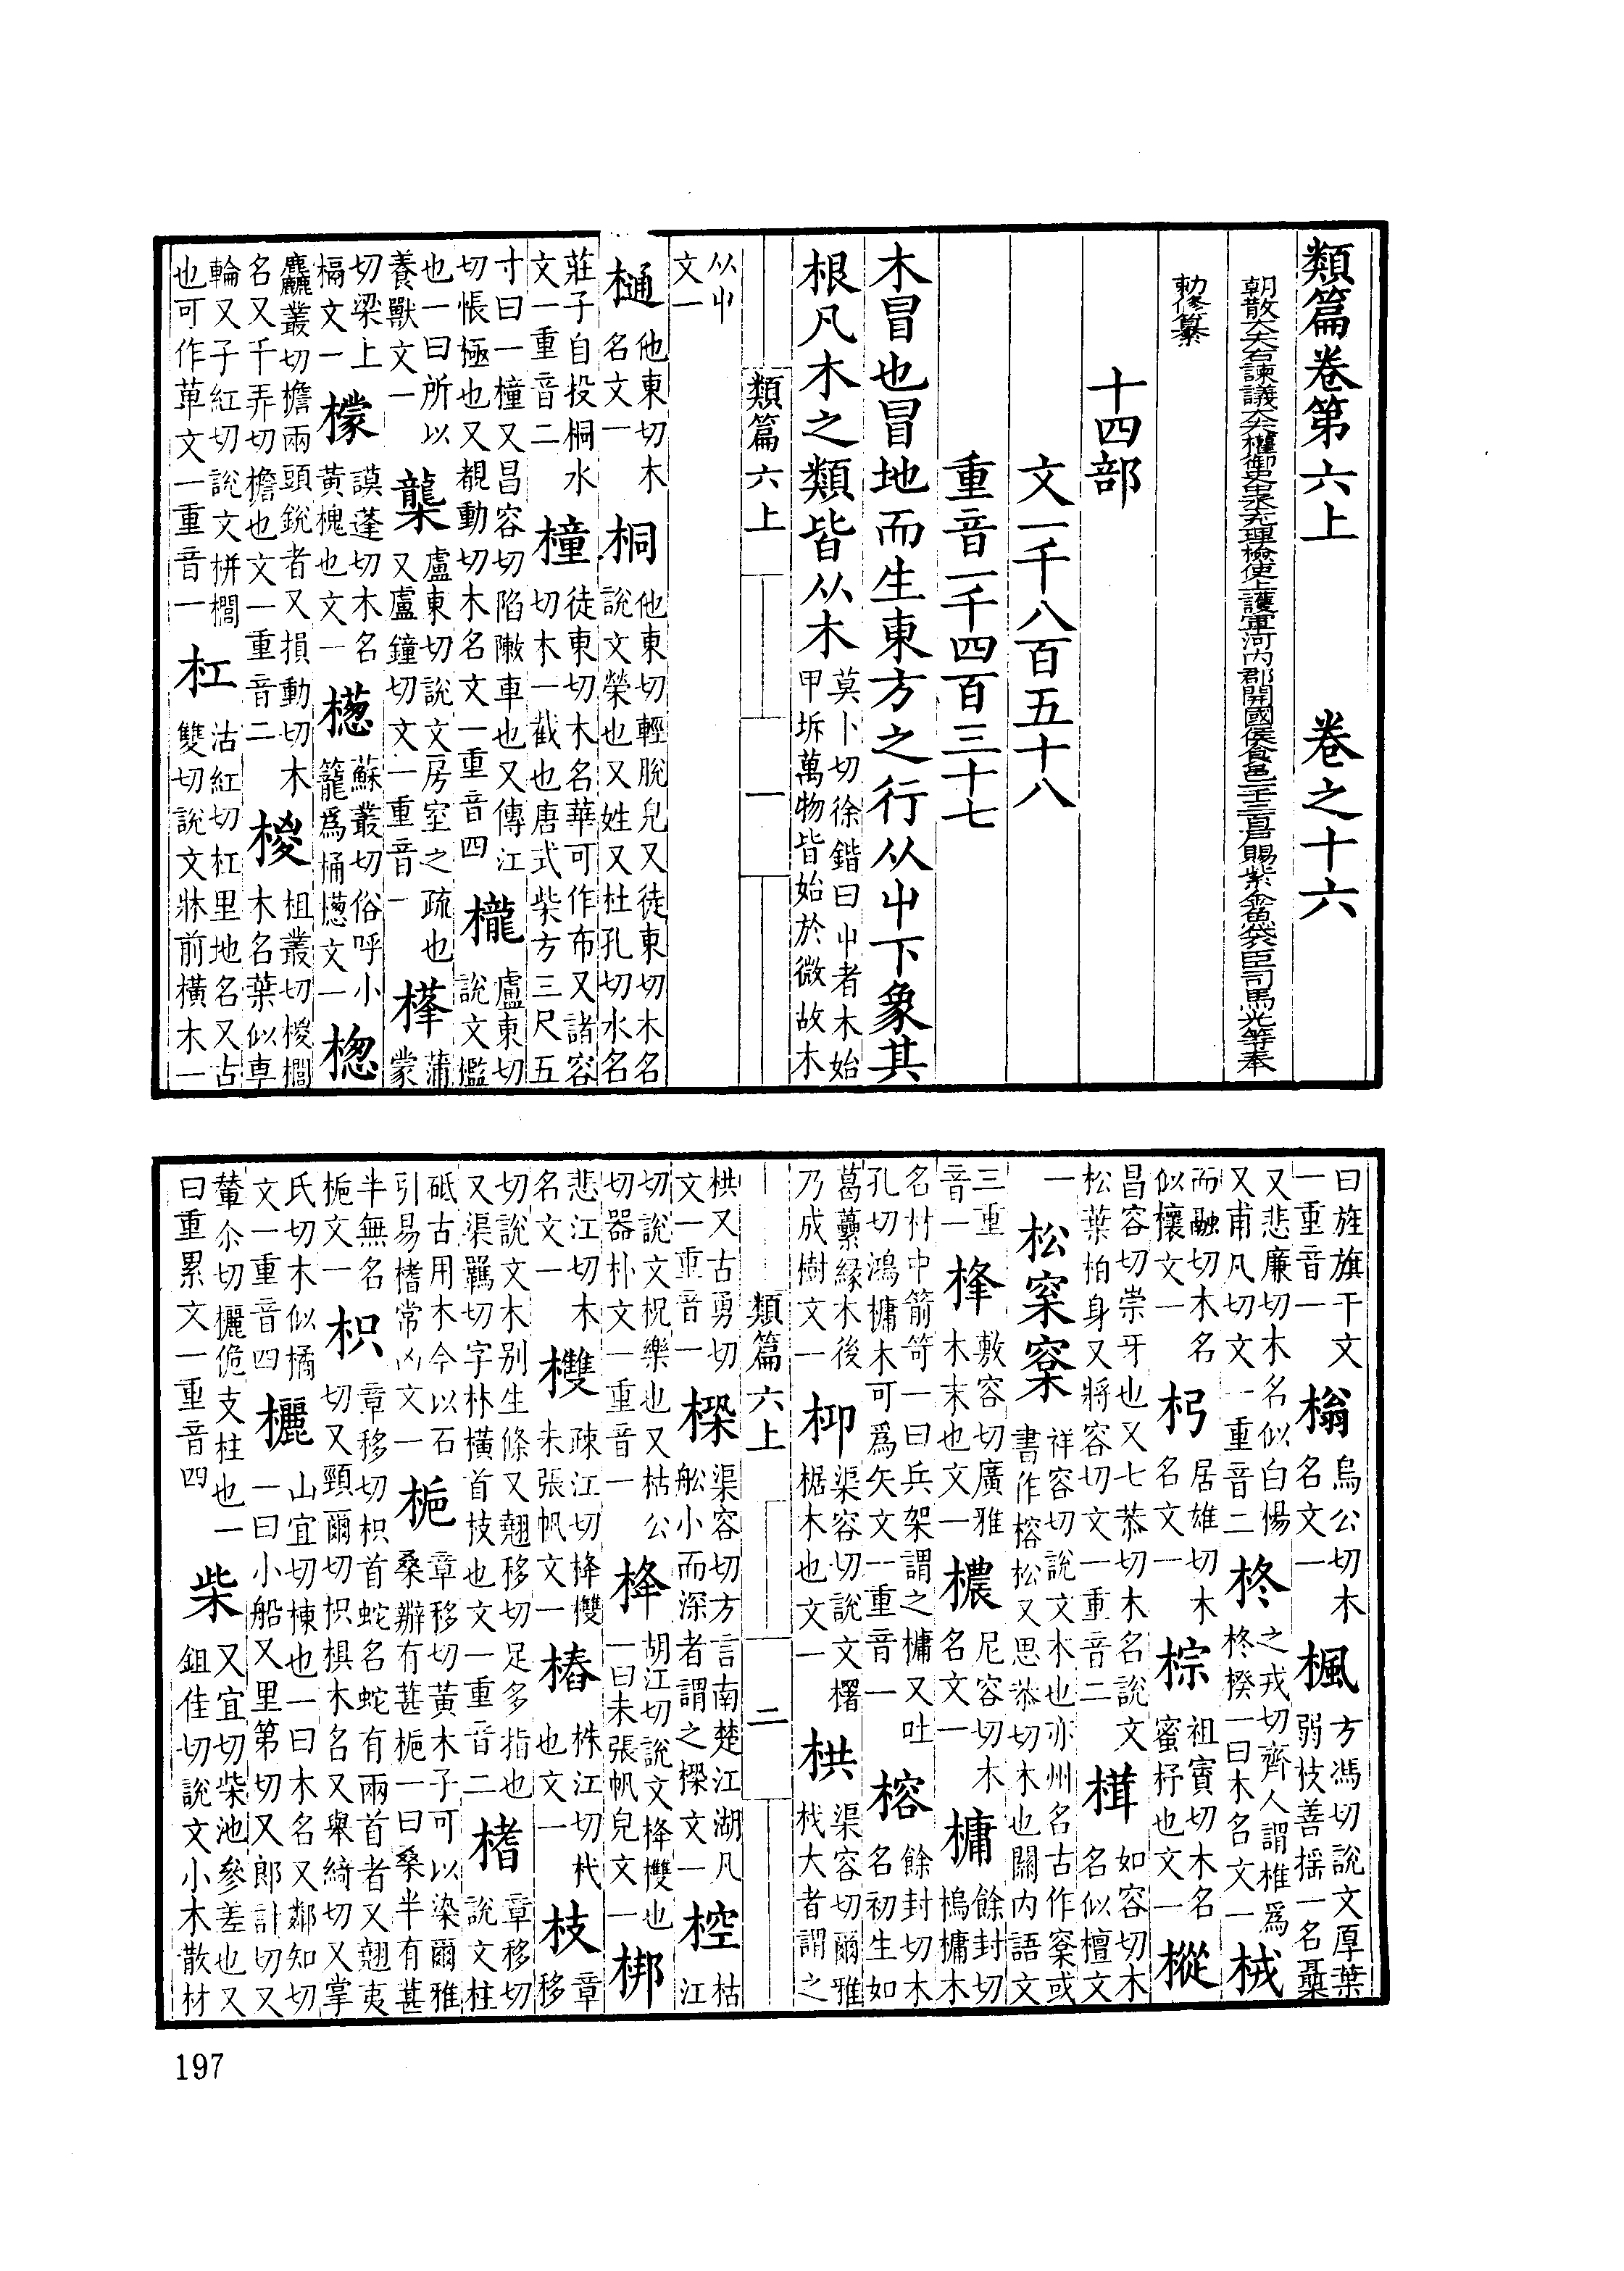 類篇卷第六上 卷之十六
朝散大夫右諫議大夫權御史中丞充理檢使上護軍河內郡開國侯食邑一千三百戶賜紫金魚袋臣司馬光等奉
勑修纂
十四部
文一千八百五十八
重音一千四百三十七
木冒也冒地而生東方之行从屮下象其
根凡木之類皆从木 莫卜切徐鍇曰屮者木始甲坼萬物皆始於微故木
類篇六上 一
从屮文一
樋 他東切木名文一 桐 他東切輕脫皃又徒東切木名說文榮也又姓又杜孔切水名
莊子自投桐水文一重音二 橦 徒東切木名華可作布又諸容切木一截也唐式柴方三尺五
寸曰一橦又昌容切陷敶車也又傳江切帳極也又覩動切木名文一重音四 櫳 盧東切說文檻
也一曰所以養獸文一 㰍 盧東切說文房室之疏也又盧鐘切文一重音一 蒲蒙
切梁上楄文一 檬 謨蓬切木名黃槐也文一 檧 蘇叢切俗呼小籠爲桶檧文一 楤
麤叢切檐兩頭銳者又損動切木名又千弄切檐也文一重音二 椶 祖叢切椶櫚木名葉似車
輪又子紅切說文栟櫚也可作萆文一重音一 杠 沽紅切杠里地名又古雙切說文牀前橫木一
曰旌旗干文一重音一 㮬 烏公切木名文一 楓 方馮切說文厚葉弱枝善搖一名
又悲廉切木名似白楊又甫凡切文一重音二 柊 之戎切齊人謂椎爲柊楑一曰木名文一 㭜
而融切木名似欀文一 杛 居雄切木名文一 棕 祖賨切木名蜜杼也文一 樅
昌容切崇牙也又七恭切木名說文松葉柏身又將容切文一重音二 榵 如容切木名似檀文
一 松 祥容切說文木也亦州名古作或書作榕松又思恭切木也關內語文
三重音一 桻 敷容切廣雅木末也文一 檂 尼容切木名文一 槦 餘封切槝槦木
名材中箭笴一曰兵架謂之槦又吐孔切鴻槦木可爲矢文一重音一 榕 餘封切木名初生如
葛藟緣木後乃成樹文一 枊 渠容切說文楈椐木也文一 栱 渠容切爾雅杙大者謂之
栱又古勇切文一重音一 渠容切方言南楚江湖凡船小而深者謂之文一 椌 枯江
類篇六上 二
切說文柷樂也又枯公切器朴文一重音一 栙 胡江切說文栙欆也一曰未張帆皃文一 梆
悲江切木名文一 欆 疎江切栙欆未張帆文一 樁 株江切杙也文一 枝 章移
切說文木别生條又翹移切足多指也又渠羈切字林橫首技也文一重音二 榰 章移切說文柱
砥古用木今以石引易榰常凶文一 梔 章移切黃木子可以染爾雅桑辦有葚梔一曰桑半有葚
半無名梔文一 枳 章移切枳首蛇名蛇有兩首者又翹夷切又頸爾切枳椇木名又舉綺切又掌
氏切木似橘文一重音四 欐 山宜切棟也一曰木名又鄰知切一曰小船又里第切又郎計切又
輦尒切欐佹支柱也一曰重累文一重音四 柴 叉宜切柴池參差也又鉏佳切說文小木散材
197